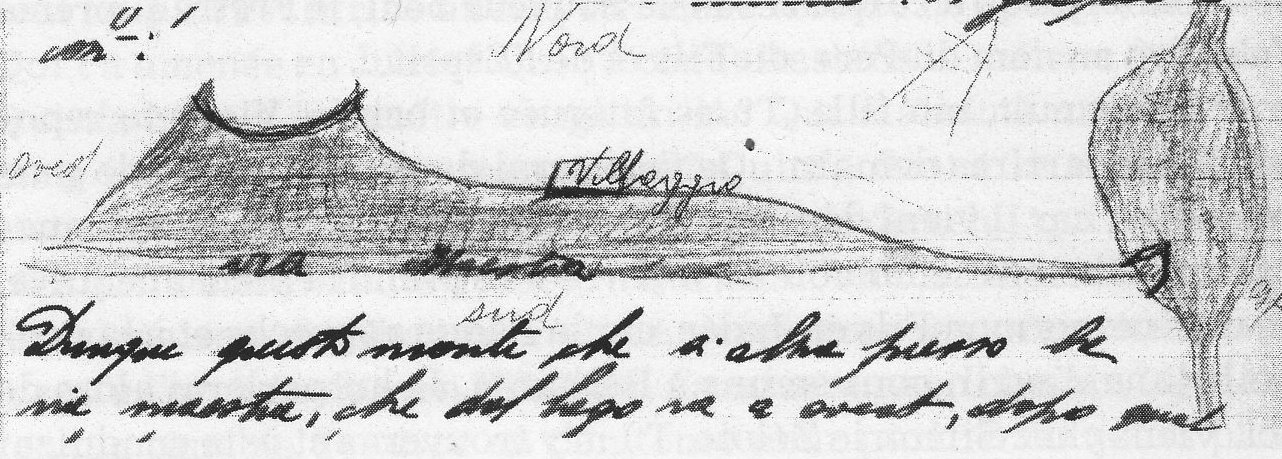 Nord
oves
Villaggio
via Maestra
sud
Dunque questo monte che si alza presso la
via maestra, che dal lago va a ovest, dopo